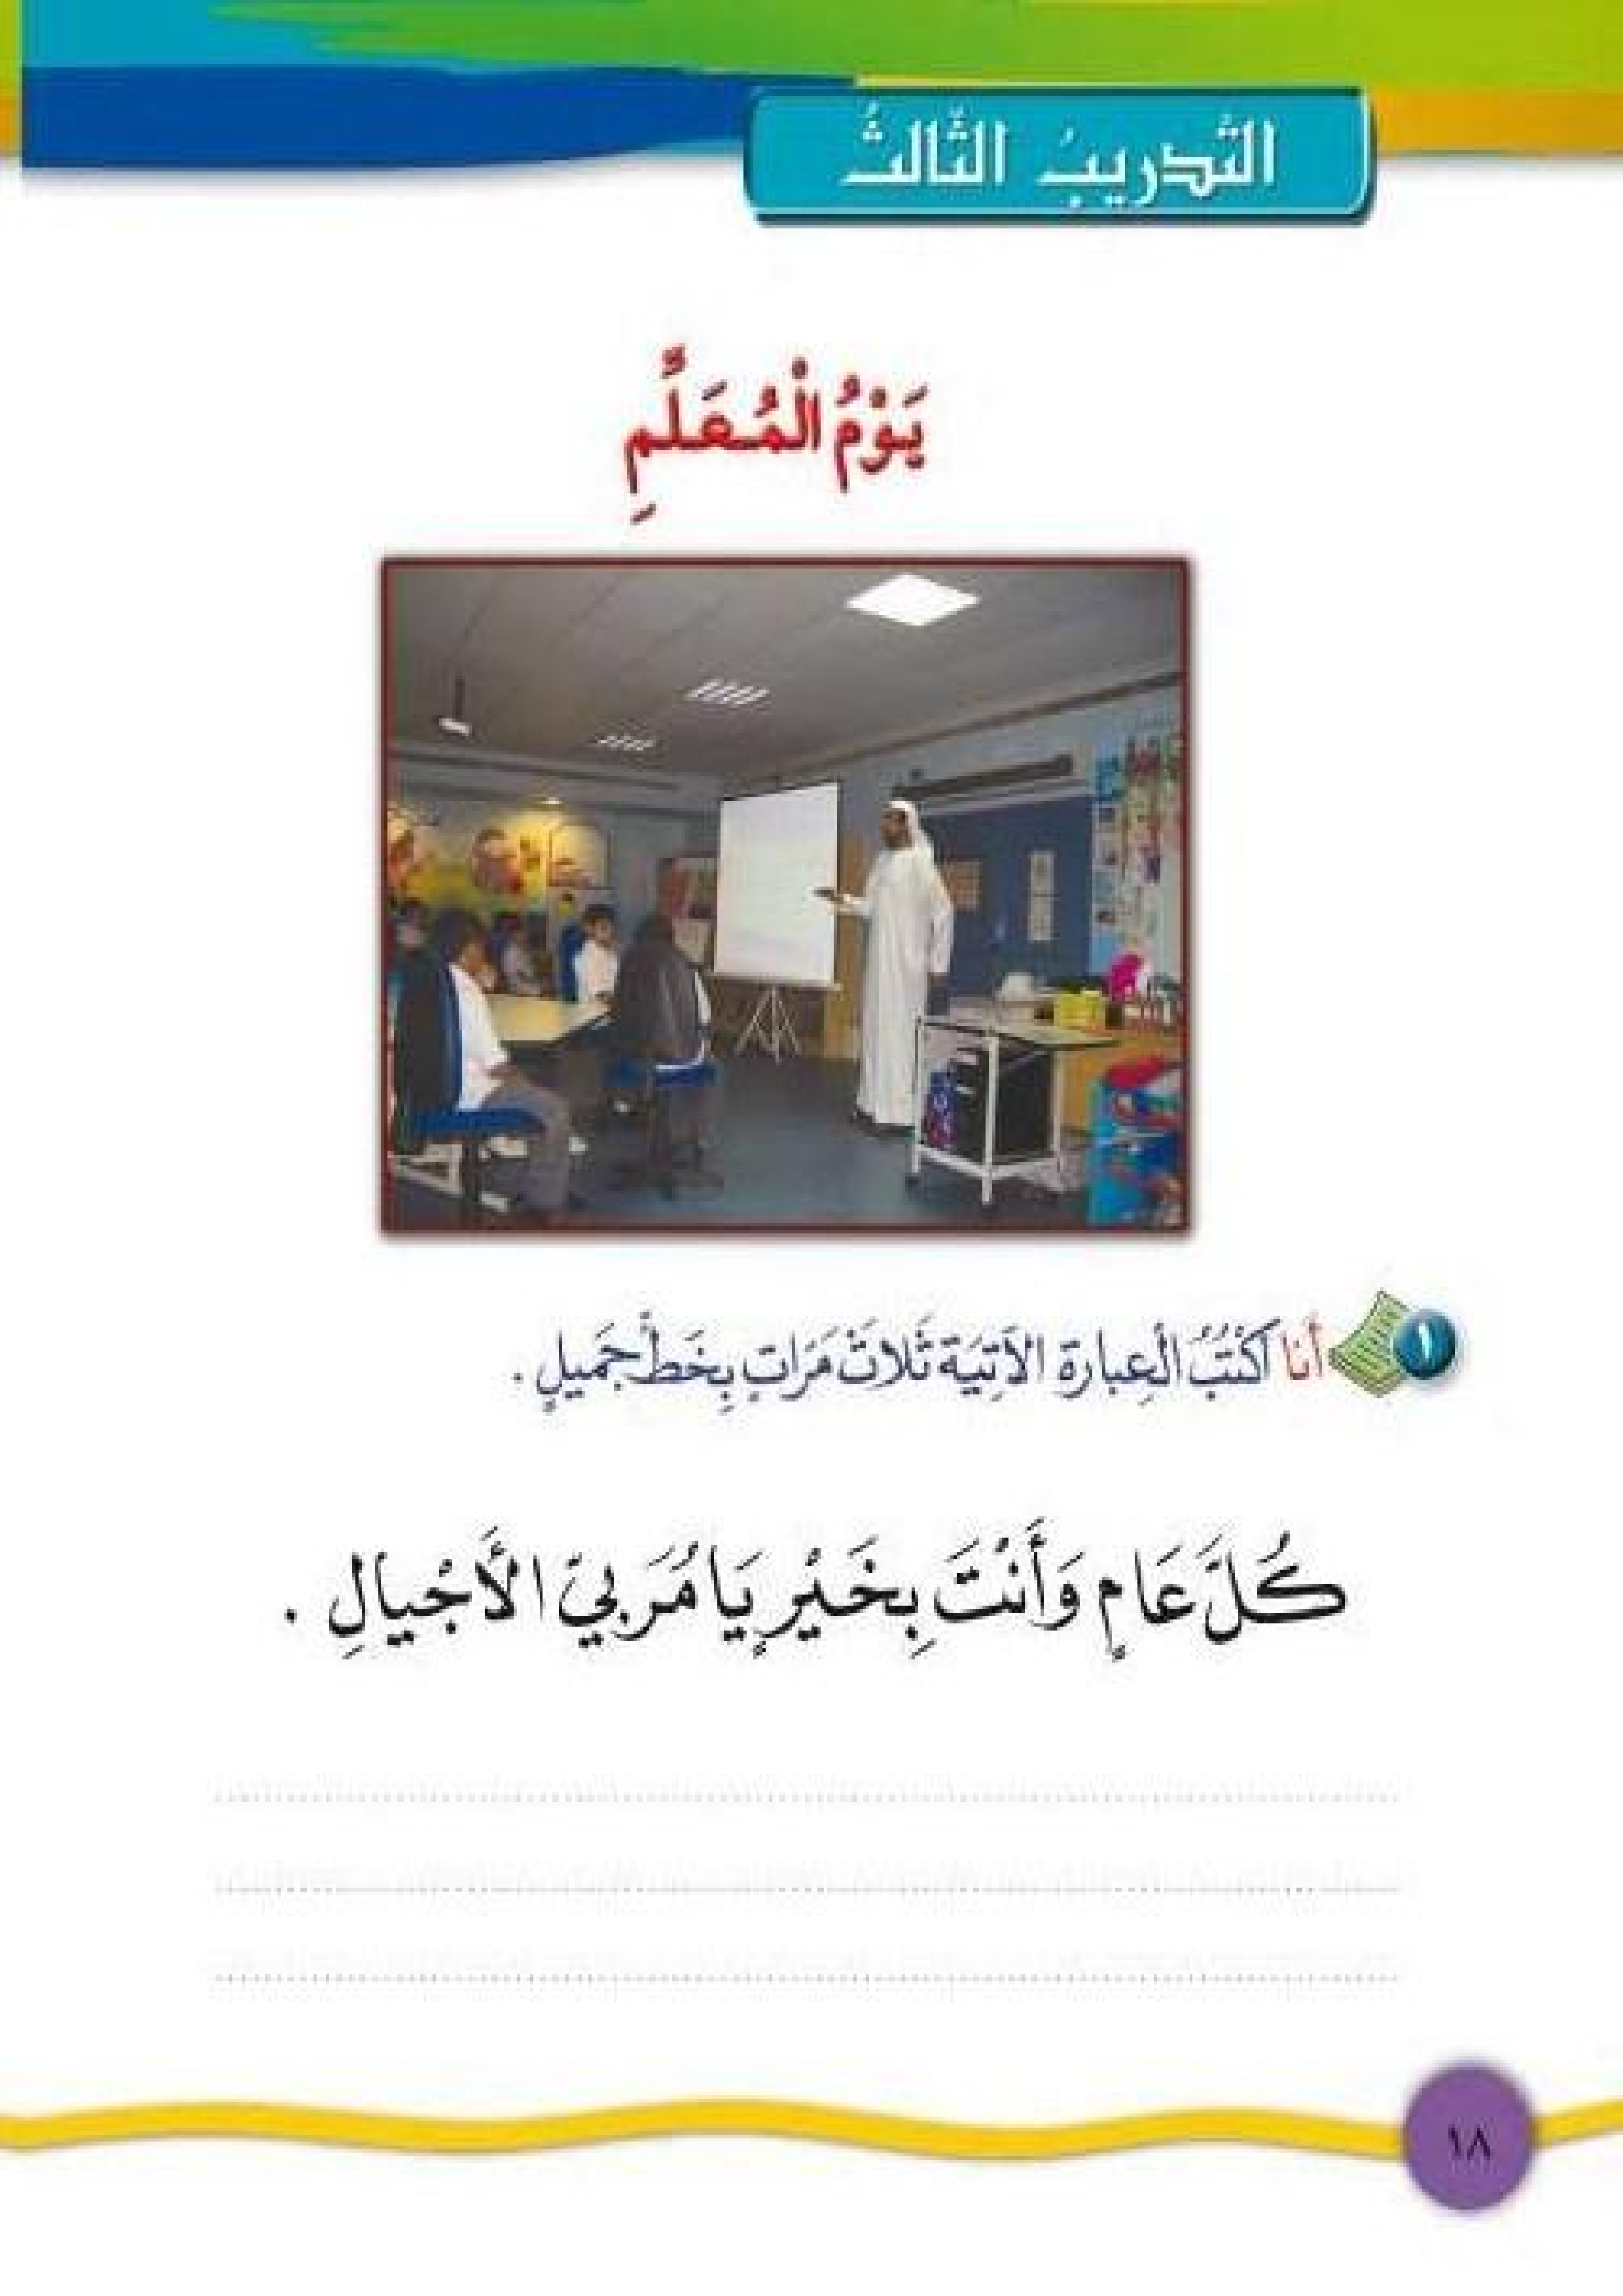 التدريبُ الثّالثُ
يَوْمُ الْمُعَلِّمِ
١
أَنا أَكْتُبُ الْعِبارَةَ الآتِيَة ثَلاثَ مَرّاتٍ بِخَطٍّ جَميلٍ .
كُلَّ عَامٍ وَأَنْتَ بِخَيْرٍ يَا مُرَبِّيَ الأَجْيالِ .
١٨